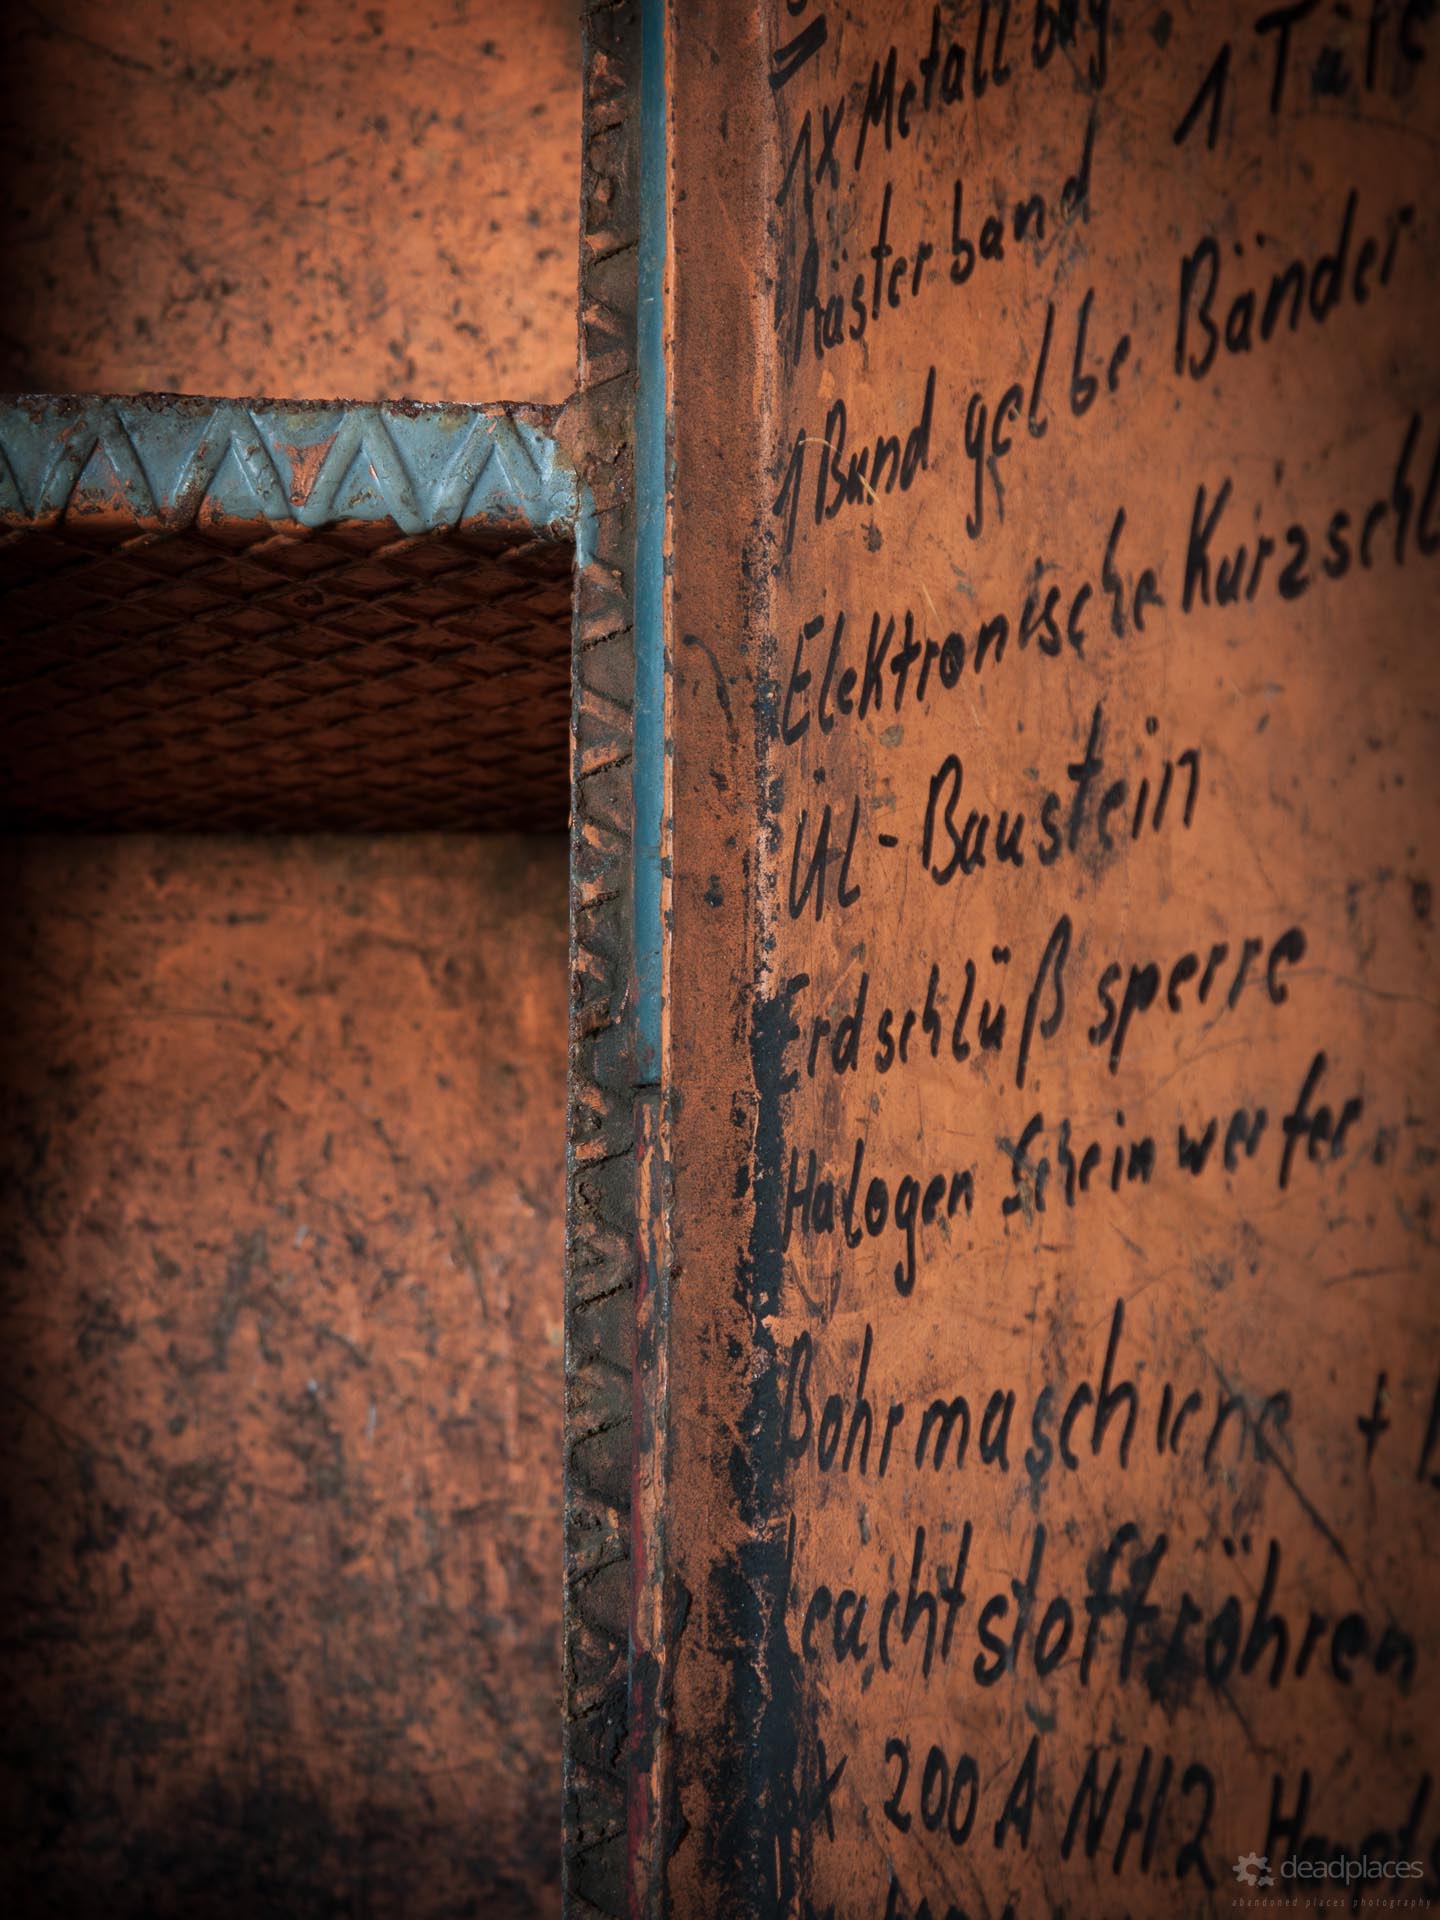 1x Metall bay 1 Tafe
Rasterband
1 Bund gelbe Bänder
Elektronische Kurzschl
UL-Baustein
Erdschlüßsperre
Halogen Scheinwerfer
Bohrmaschiene +
Leuchtstoffröhren
x 200 A NH2
deadplaces
abandoned places photography